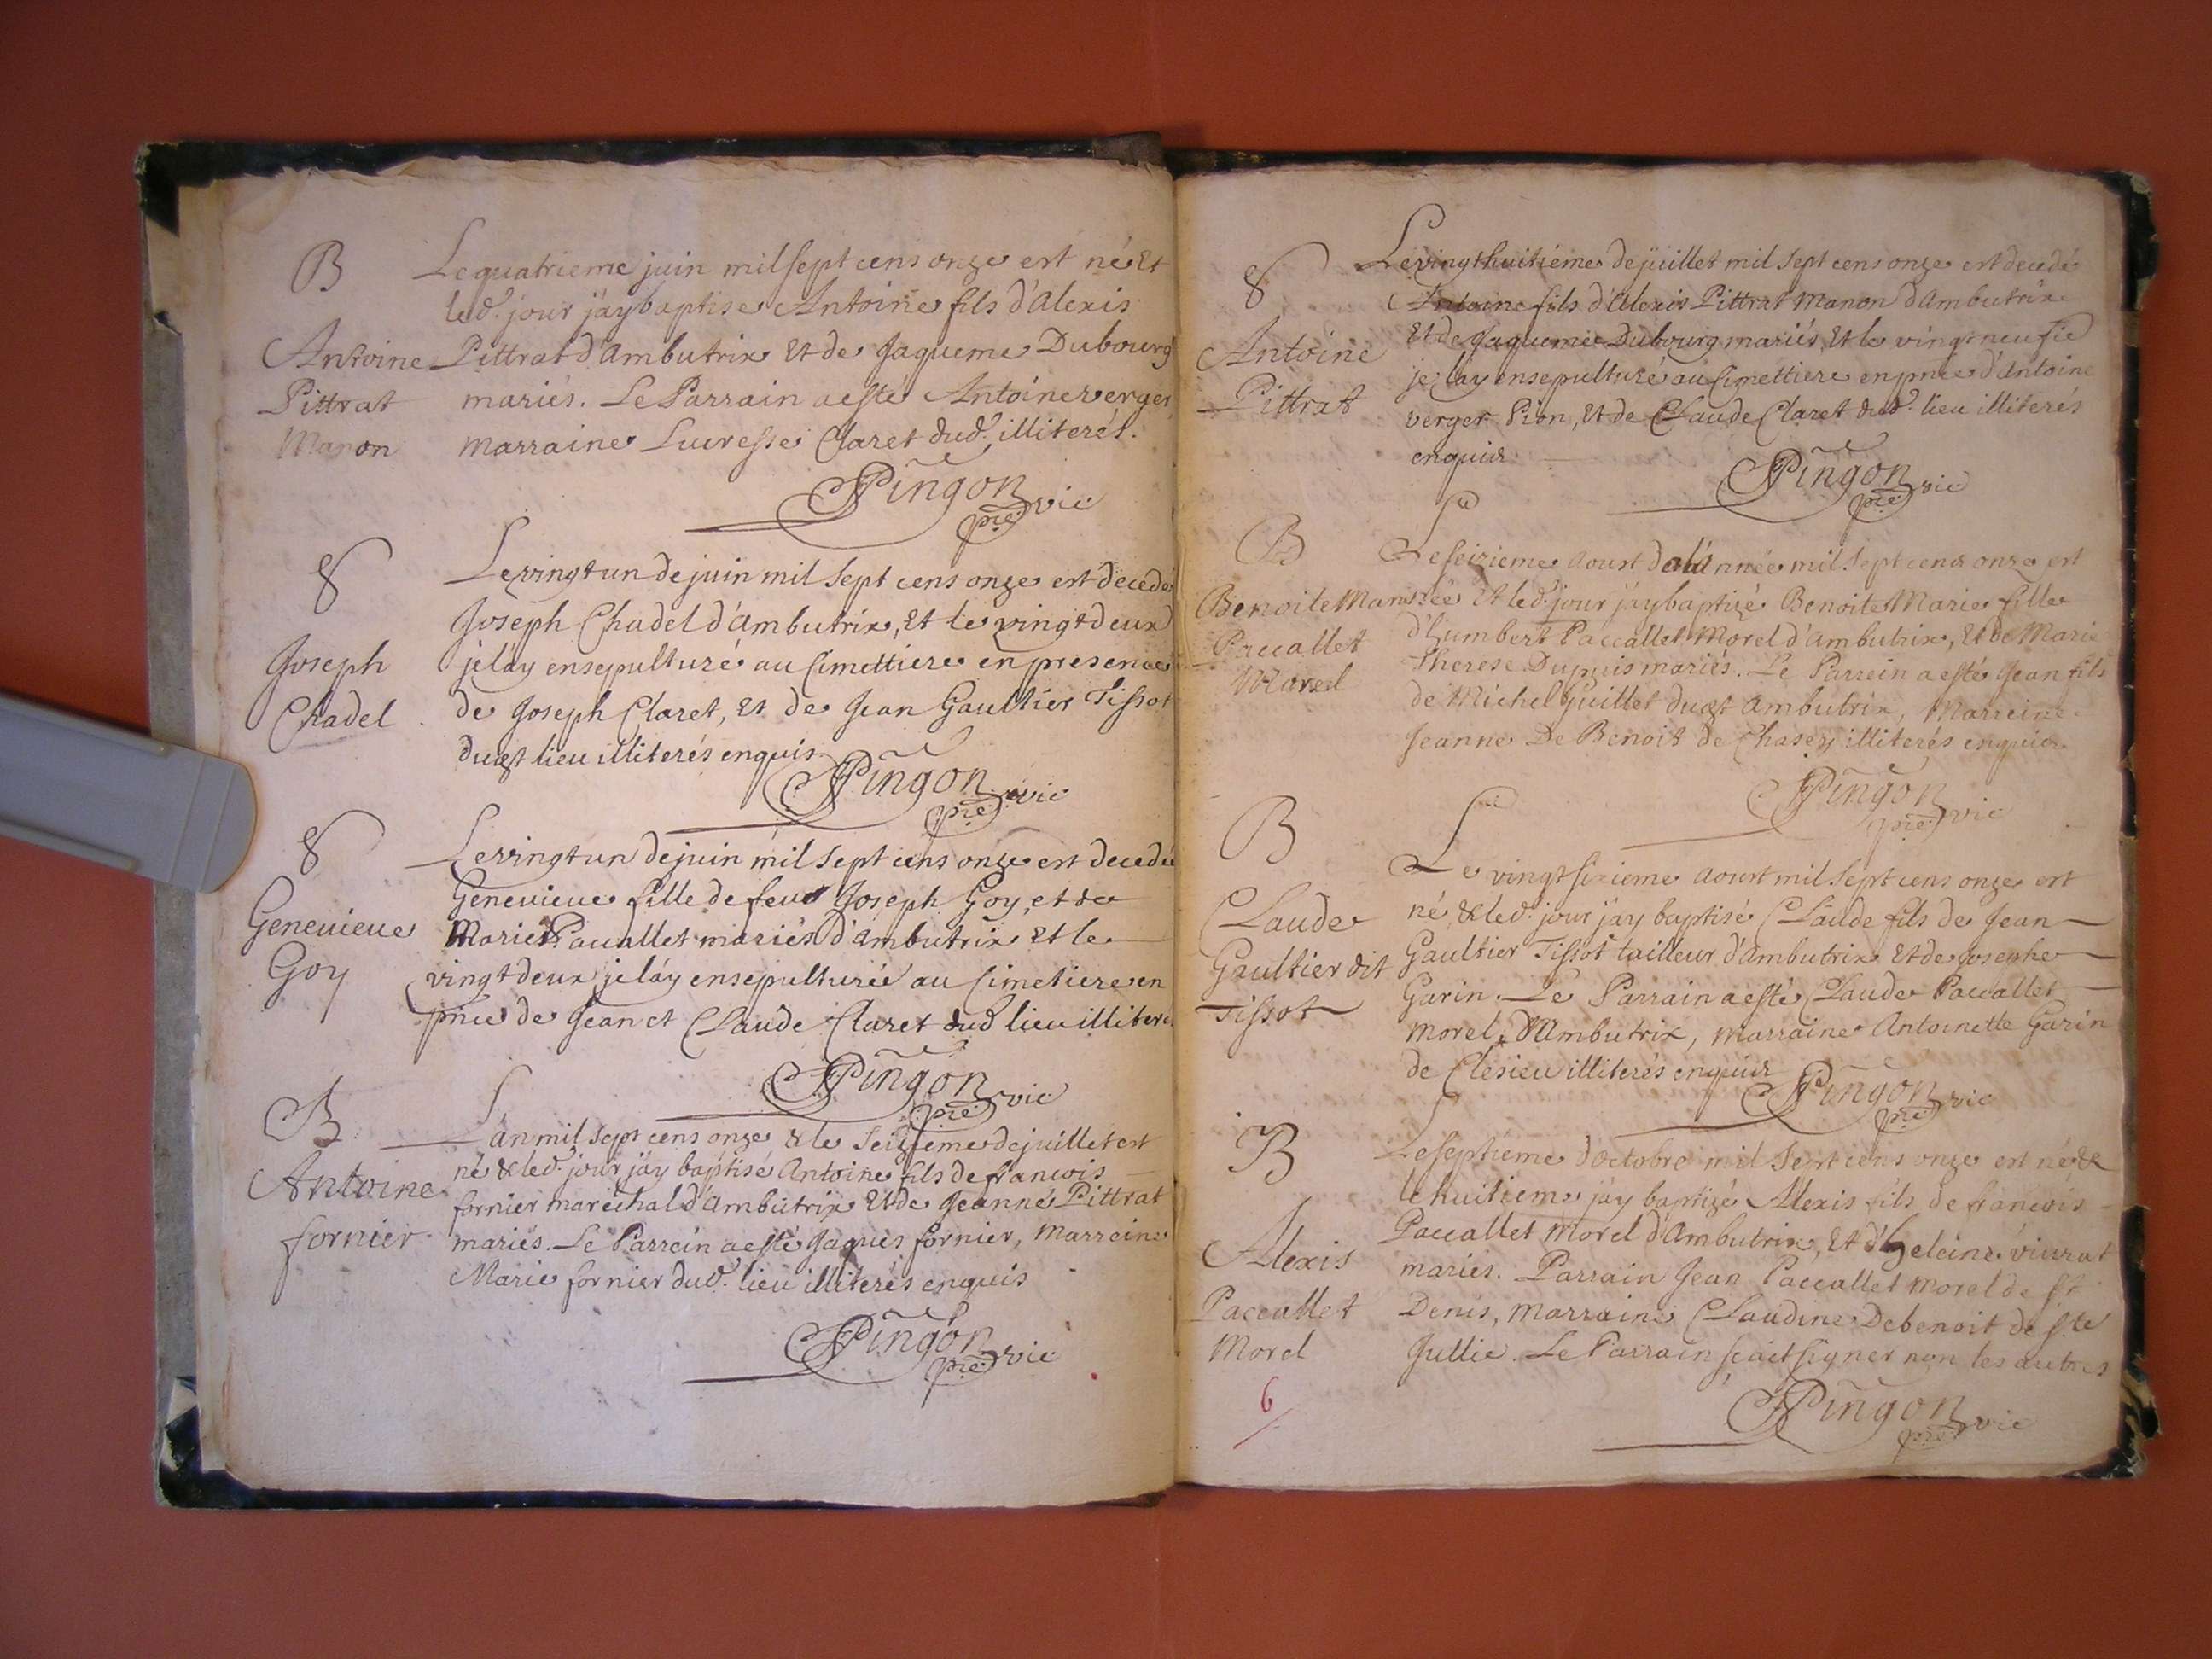 B
Antoine
Pittrat
Manon
Le quatrieme juin mil sept cens onze est né Et
led. jour j'ay baptisé Antoine fils d'Alexis
Pittrat d'Ambutrix Et de Jaqueme Dubourg
mariés. Le Parrain a esté Antoine verger
marraine Lucresse Claret dud. illiterés.
Pingon
pre vic
8
Joseph
Chadel
Le vingt un de juin mil sept cens onze est decedé
Joseph Chadel d'Ambutrix, Et le vingt deux
je l'ay ensepulturé au Cimettiere en presence
de Joseph Claret, Et de Jean Gaultier Tissot
dudt lieu illiterés enquis
Pingon
pre vic
8
Genevieve
Goy
Le vingt un de juin mil sept cens onze est decedée
Genevieve fille de feu Joseph Goy, et de
Marie Pacallet mariés d'Ambutrix Et le
vingt deux je l'ay ensepulturée au Cimetiere en
pnce de Jean et Claude Claret dud lieu illiteré
Pingon
pre vic
B
Antoine
fornier
L'an mil sept cens onze & le Seizieme de juillet est
né & led. jour j'ay baptisé Antoine fils de francois
fornier marechal d'Ambutrix Et de Jeanne Pittrat
mariés. Le Parrein a esté Jaques fornier, Marreine
Marie fornier dud. lieu illiterés enquis
Pingon
pre vic
8
Antoine
Pittrat
Le vingt huitiéme de juillet mil sept cens onze est decedé
Antoine fils d'Alexis Pittrat Manon d'Ambutrix
Et de Jaquemie Dubourg mariés, Et le vingt neufie
je l'ay ensepulturé au Cimettiere en pnce d'Antoine
verger Pion, Et de Claude Claret dud. lieu illiterés
enquis
Pingon
pre vic
B
Benoite Marie
Paccallet
Morel
Le seizieme Aoust de l'année mil sept cens onze est
née Et led. jour j'ay baptizé Benoite Marie fille
d'humbert Paccallet Morel d'Ambutrix, Et de Marie
Therese Dupuis mariés. Le Parrein a esté Jean fils
de Michel Guillet dudt Ambutrix, Marreine
Jeanne De Benoit de Chasey illiterés enquis
Pingon
pre vic
B
Claude
Gaultier dit
Tissot
Le vingt sixieme Aoust mil sept cens onze est
né & led. jour j'ay baptisé Claude fils de Jean
Gaultier Tissot tailleur d'Ambutrix Et de Josephe
Garin. Le Parrain a esté Claude Paccallet
Morel d'Ambutrix, marraine Antoinette Garin
de Clesieu illiterés enquis
Pingon
pre vic
B
Alexis
Paccallet
Morel
6
Le septieme d'octobre mil sept cens onze est né &
le huitieme j'ay baptizé Alexis fils de francois
Paccallet Morel d'Ambutrix, Et d'heleine viurat
mariés. Parrain Jean Paccallet morel de St
Denis, Marraine Claudine Debenoit de Ste
Jullie. Le Parrain sçait signer non les autres
Pingon
pre vic